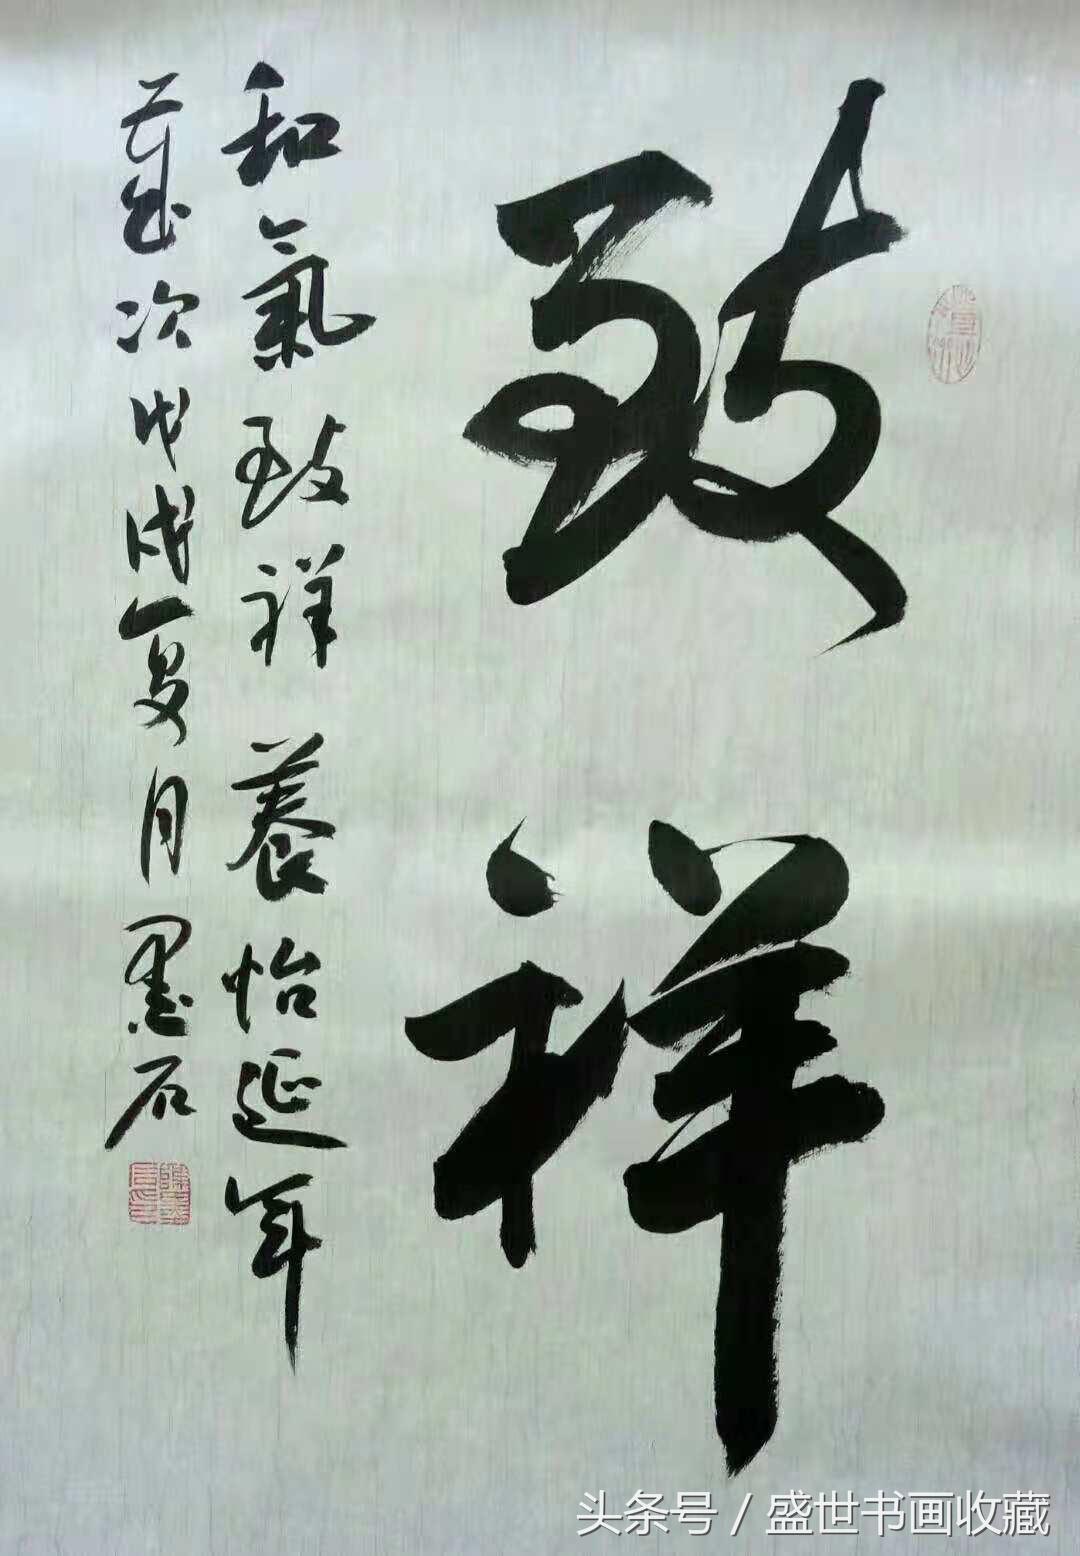 致祥
和氣致祥養怡延年
歲次戊戌夏月墨石
头条号 / 盛世书画收藏